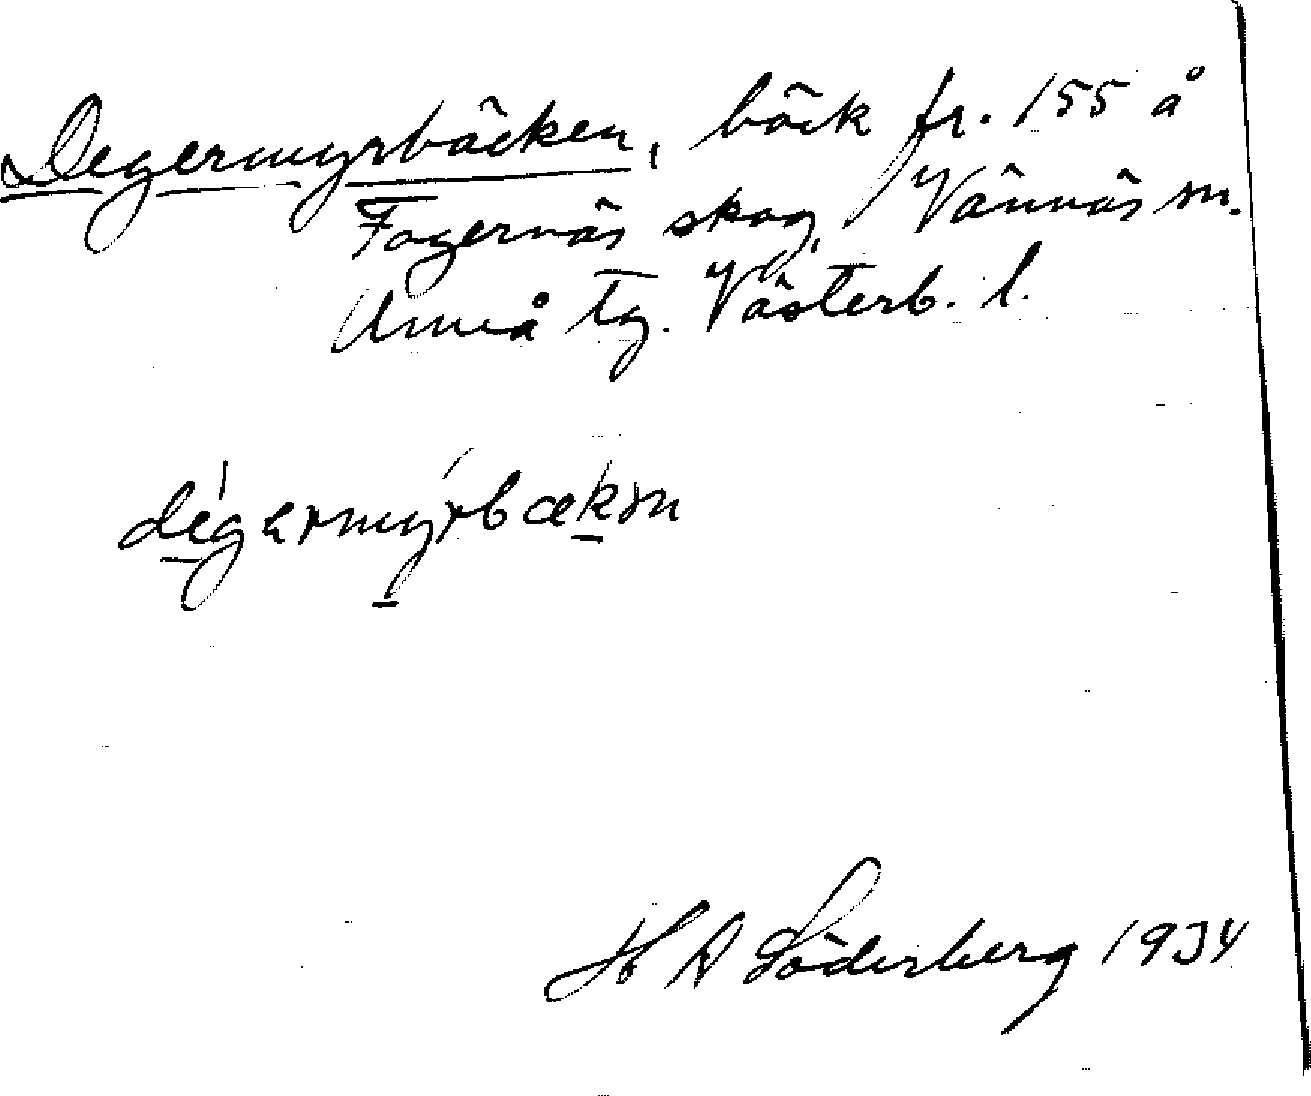 Degermyrbäcken, bäck fr. 155 å
Fagernäs skog, Vännäs sn.
Umeå tg. Västerb. l.
H A Söderberg 1934